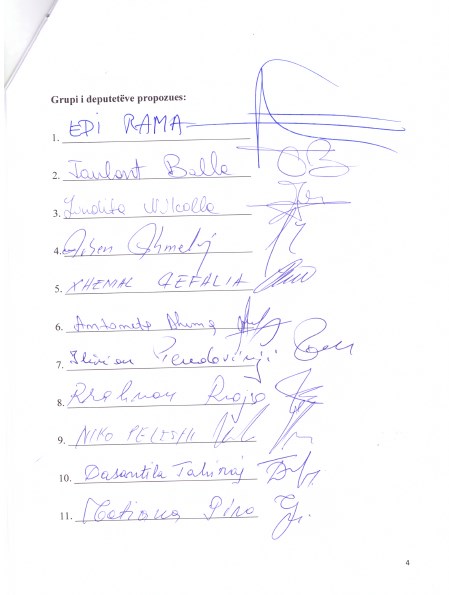 Grupi i deputetëve propozues:
1. EDI RAMA
2. Taulant Balla
3. Lindita Nikolla
4. Arben Ahmetaj
5. XHEMAL QEFALIA
6. Antoneta
7. Ilirian Pendavinji
8. Rrahman Rraja
9. NIKO PELESHI
10. Dasantila Tahiraj
11. Matilda
4